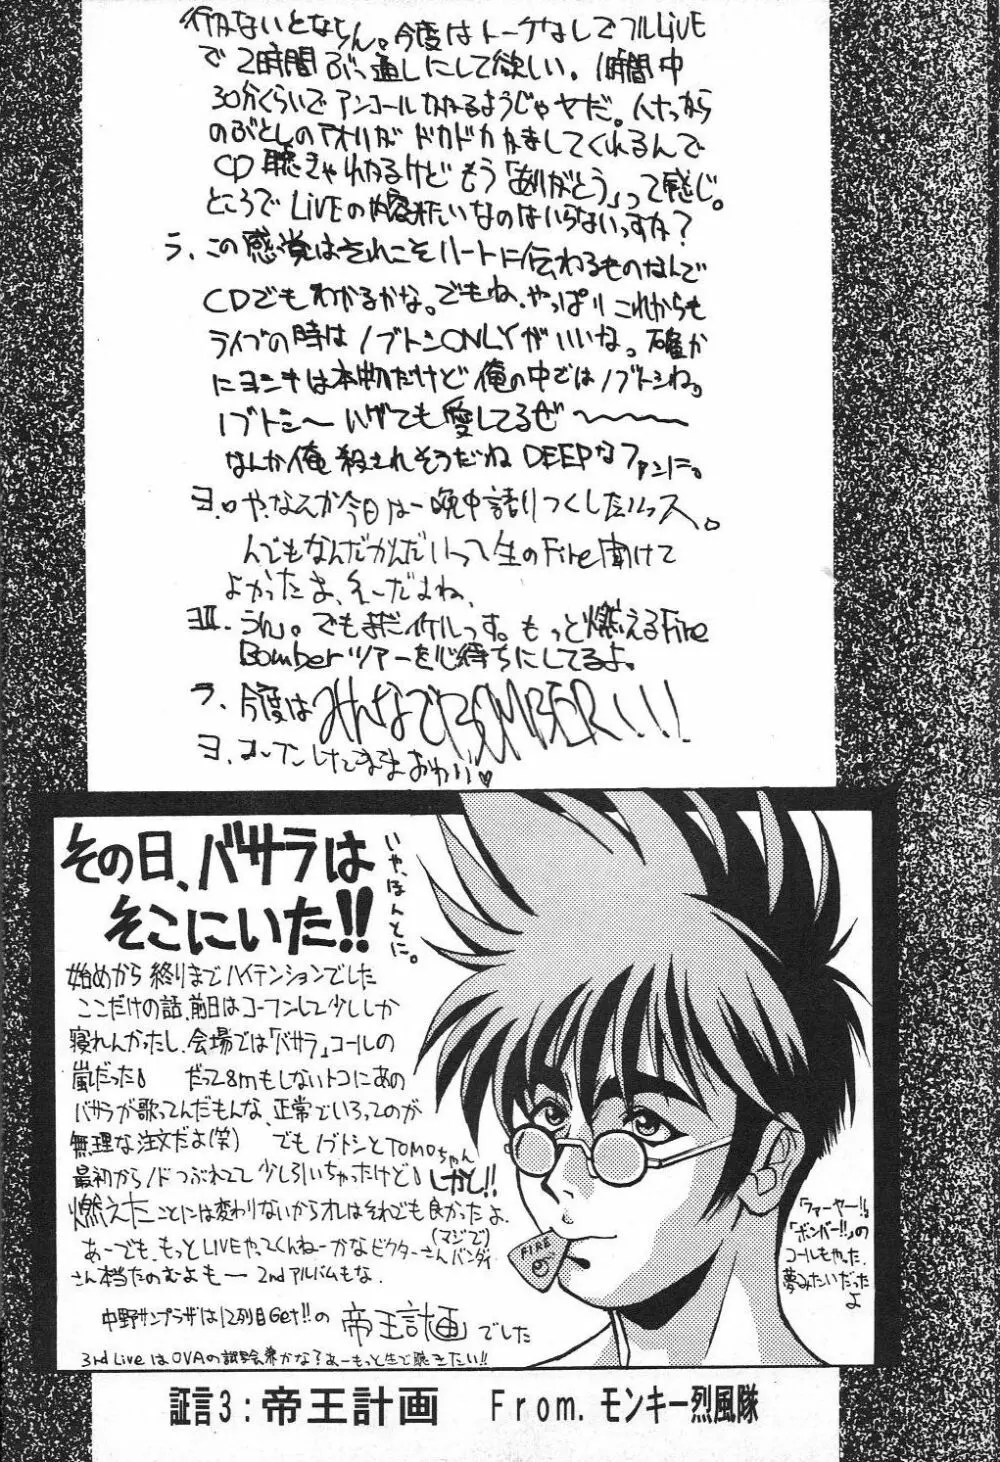 行かないとならん。今度はトークなしでフルLiVE
で2時間ぶっ通しにして欲しい。1時間中
30分くらいでアンコールかかるようじゃヤだ。んだっから
のぶとしのアオリがドカドカかましてくれるんで
CD聴きゃわかるけどもう「ありがとう」って感じ。
ところでLiVEの内容みたいなのはいらないっすか?
ラ、この感覚はそれこそハートに伝わるものなんで
CDでもわかるかな。でもね、やっぱりこれからも
ライブの時はノブトシONLYがいいな。確か
にヨシキは本物だけど俺の中ではノブトシね。
ノブトシ〜 いつでも愛してるぜ〜〜〜〜
なんか俺殺されそうだねDEEPなファンに。
ヨ.やなんか今日は一晩中語りつくしたいっス。
んでもなんだかんだいって生のFire聞けて
よかったよ、そーだよね、
ヨII.うん。でもまだイケルっす。もっと燃えるFire
Bomberツアーを心待ちにしてるよ。
ラ.今度はみんなでBOMBER!!!
ヨ.コーフンしたままおわり♥
その日、バサラは
そこにいた!!
いや、ほんとに。
始めから終りまでハイテンションでした
ここだけの話、前日はコーフンして少ししか
寝れんかったし、会場では「バサラ」コールの
嵐だった。 だって8mもしないトコにあの
バサラが歌ってんだもんな、正常でいろってのが
無理な注文だよ(笑) でもノブトシとTOMOちゃん
最初からノドつぶれてて少し引いちゃったけど。しかし!!
燃えたことには変わりないからオレはそれでも良かったよ。
(マジで)
あーでも、もっとLIVEやってくんねーかなビクターさんバンダイ
さん本当たのむよもー 2ndアルバムもな。
中野サンプラザは12列目Get!!の 帝王計画 でした
3rd LiveはOVAの試写会兼かな?あーもっと生で聴きたい!!
FIRE
「ファーヤー!!」
「ボンバー!!」の
コールもやった。
夢みたいだった
よ
証言3:帝王計画 From.モンキー烈風隊